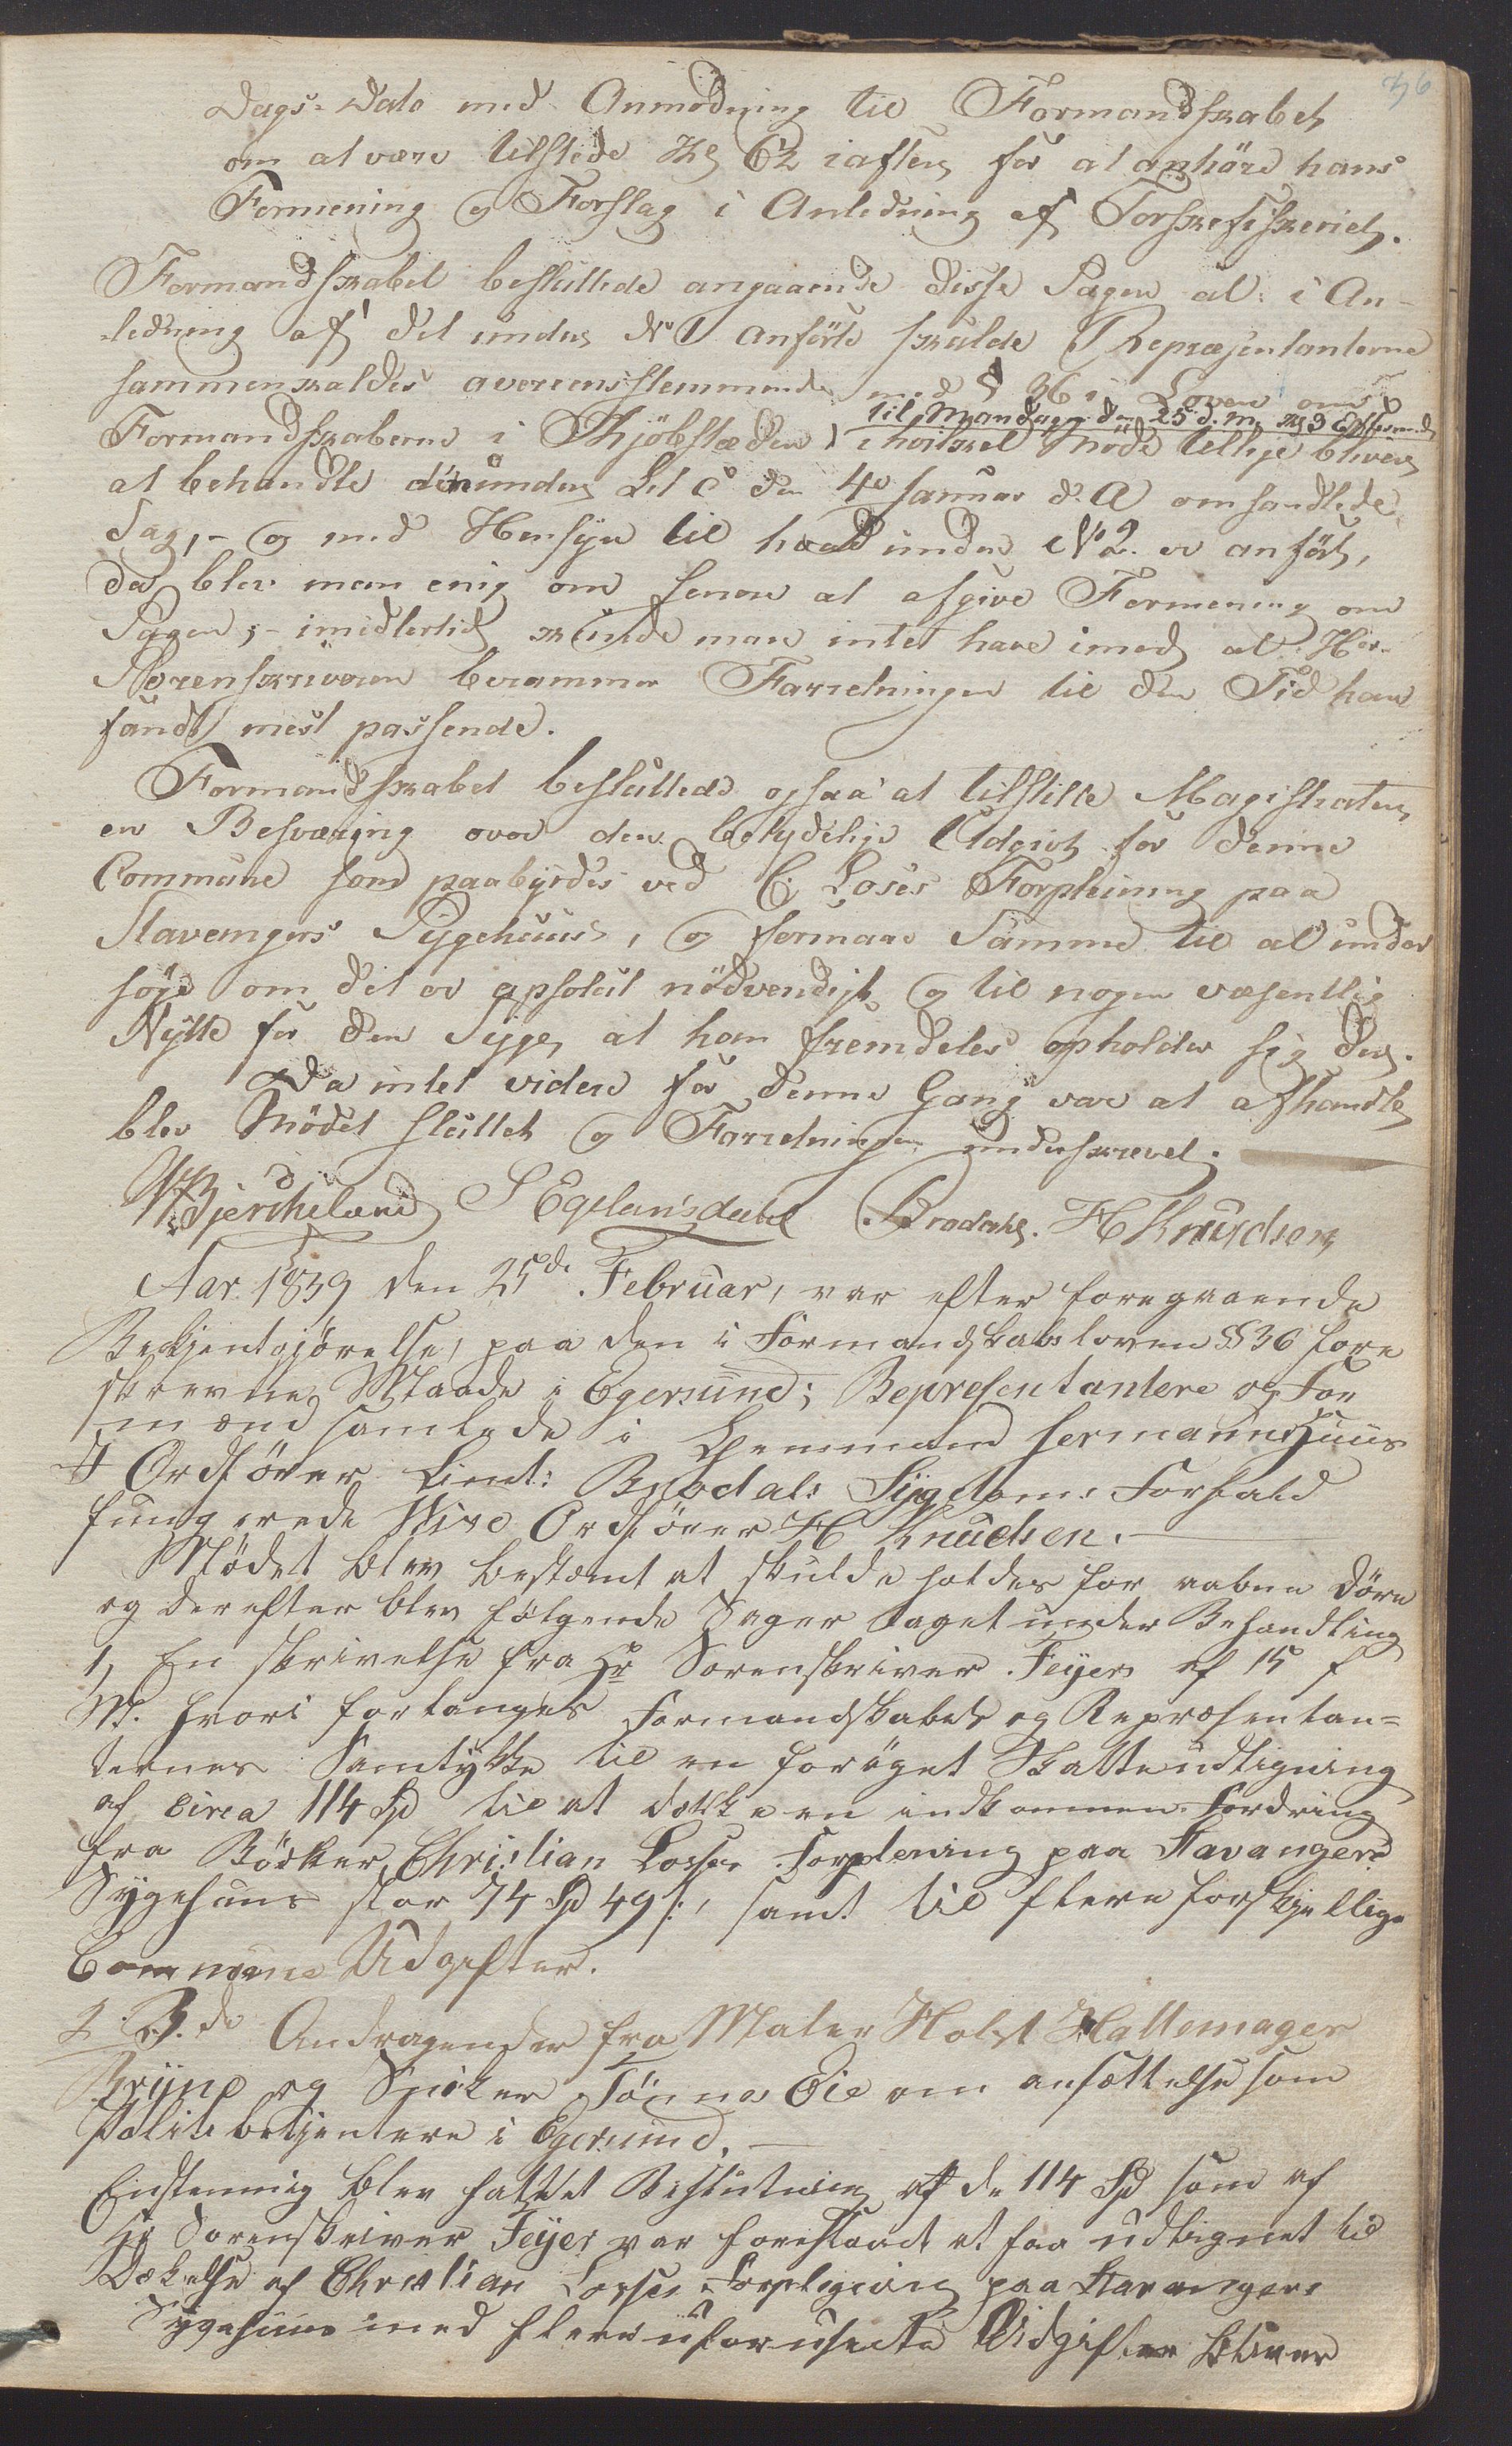 36
Dags-Dato med Anmodning til Formandskabet
om at være tilstede Kl 6½ iaften for at anhöre hans
Formening og Forslag i Anledning af Torskefiskeriet.
Formandskabet besluttede angaaende disse Sager at: i An-
ledning af det under No 1 anförte skulde Repræsentanterne
sammenkaldes overeensstemmende med § 36 i Loven om
til Mandagen den 25 d. M. Kl 3 Efterm:
Formandskaberne i Kjöbstæden i hvilket Möde tillige bliver
at behandle den under Lit C den 4de Januar d. A omhandlede
Sag, - og med Hensyn til hvad under No 2. er anfört,
da blev man enig om senere at afgive Formening om
Sagen; - imidlertid kunde man intet have imod at Hr.
Sorenskriveren berammer Forretningen til den Tid han
fandt mest passende.
Formandskabet besluttede ogsaa at tilstille Magistraten
en Besværing over den betydelige Udgivt for denne
Commune som paabyrdes ved C. Loses Forpleining paa
Stavangers Sygehuus, og formaae Samme til at under
söge om det er apsolut nödvendigt og til nogen væsentlig
Nytte for den Syge, at han fremdeles opholder sig der.
Da intet videre for denne Gang var at afhandle
blev Mödet sluttet og Forretningen underskrevet.
Bjerkeland S Egelandsdahl Brodahl. H Knudsen
Aar 1839 den 25de Februar, var efter foregaaende
Bekjentgjörelse, paa den i Formandskabsloven §§ 36 fore
skrevne Maade i Egersund; Repræsentantere og For
mænd samlede i Lensmand Hermanns Huus
I Ordförer Lieut: Brodals Sygdoms Forfald
fungerede Vice Ordförer H Knudsen.
Mödet blev bestemt at skulde holdes for aabne Döre
og derefter blev fölgende Sager taget under Behandling
1, En skrivelse fra Hr Sorenskriver Feyer af 15 f
M. hvori forlanges Formandskabets og Repræsentan=
ternes Samtykke til en foröget Skatteudligning
af circa 114 Spd til at dække en indkommen Fordring
fra Bödker Christian Losses Forplening paa Stavangers
Sygehuus stor 74 Spd 49 s:, samt til flere forskjellige
Commune Udgifter.
2. B.de Andragender fra Maler Holst Hattemager
Bryne og Snedker Tönnes Eie om ansættelse som
Politibetjentere i Egersund.
Enstemmig blev fattet Beslutning at de 114 Spd som af
Hr Sorenskriver Feyer var foreslaaet at faa udlignet til
Dækkelse af Christian Losses Forplegning paa Stavangers
Sygehuus med flere uforudseete Udgifter bliver